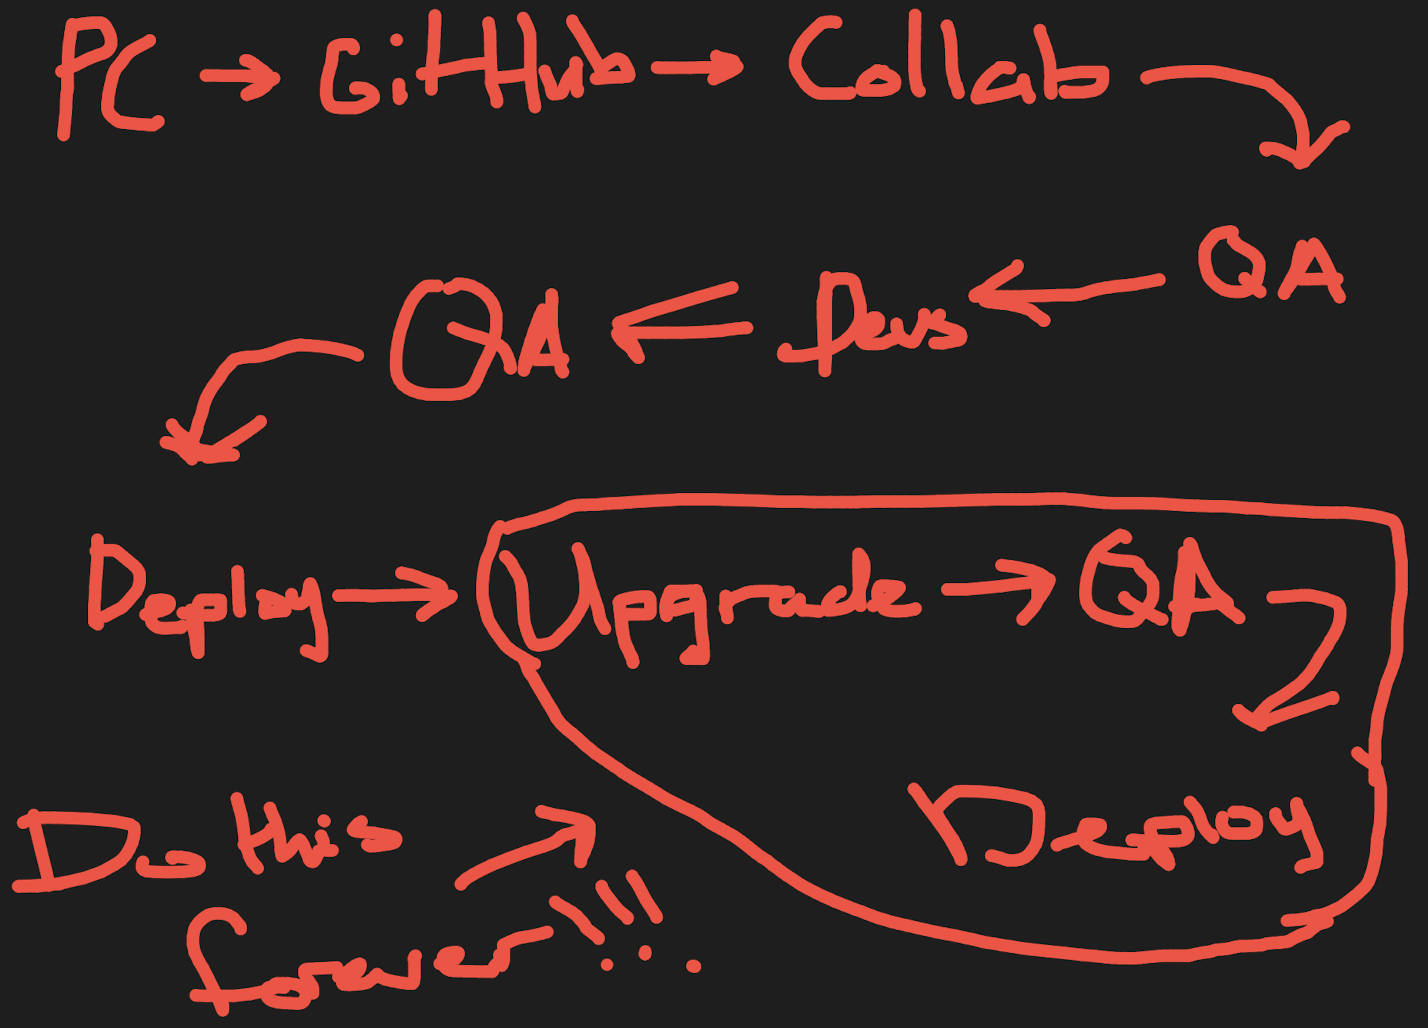 PC → GitHub → Collab
QA ← Devs ← QA
Deploy → Upgrade → QA
Deploy
Do this
forever!!!